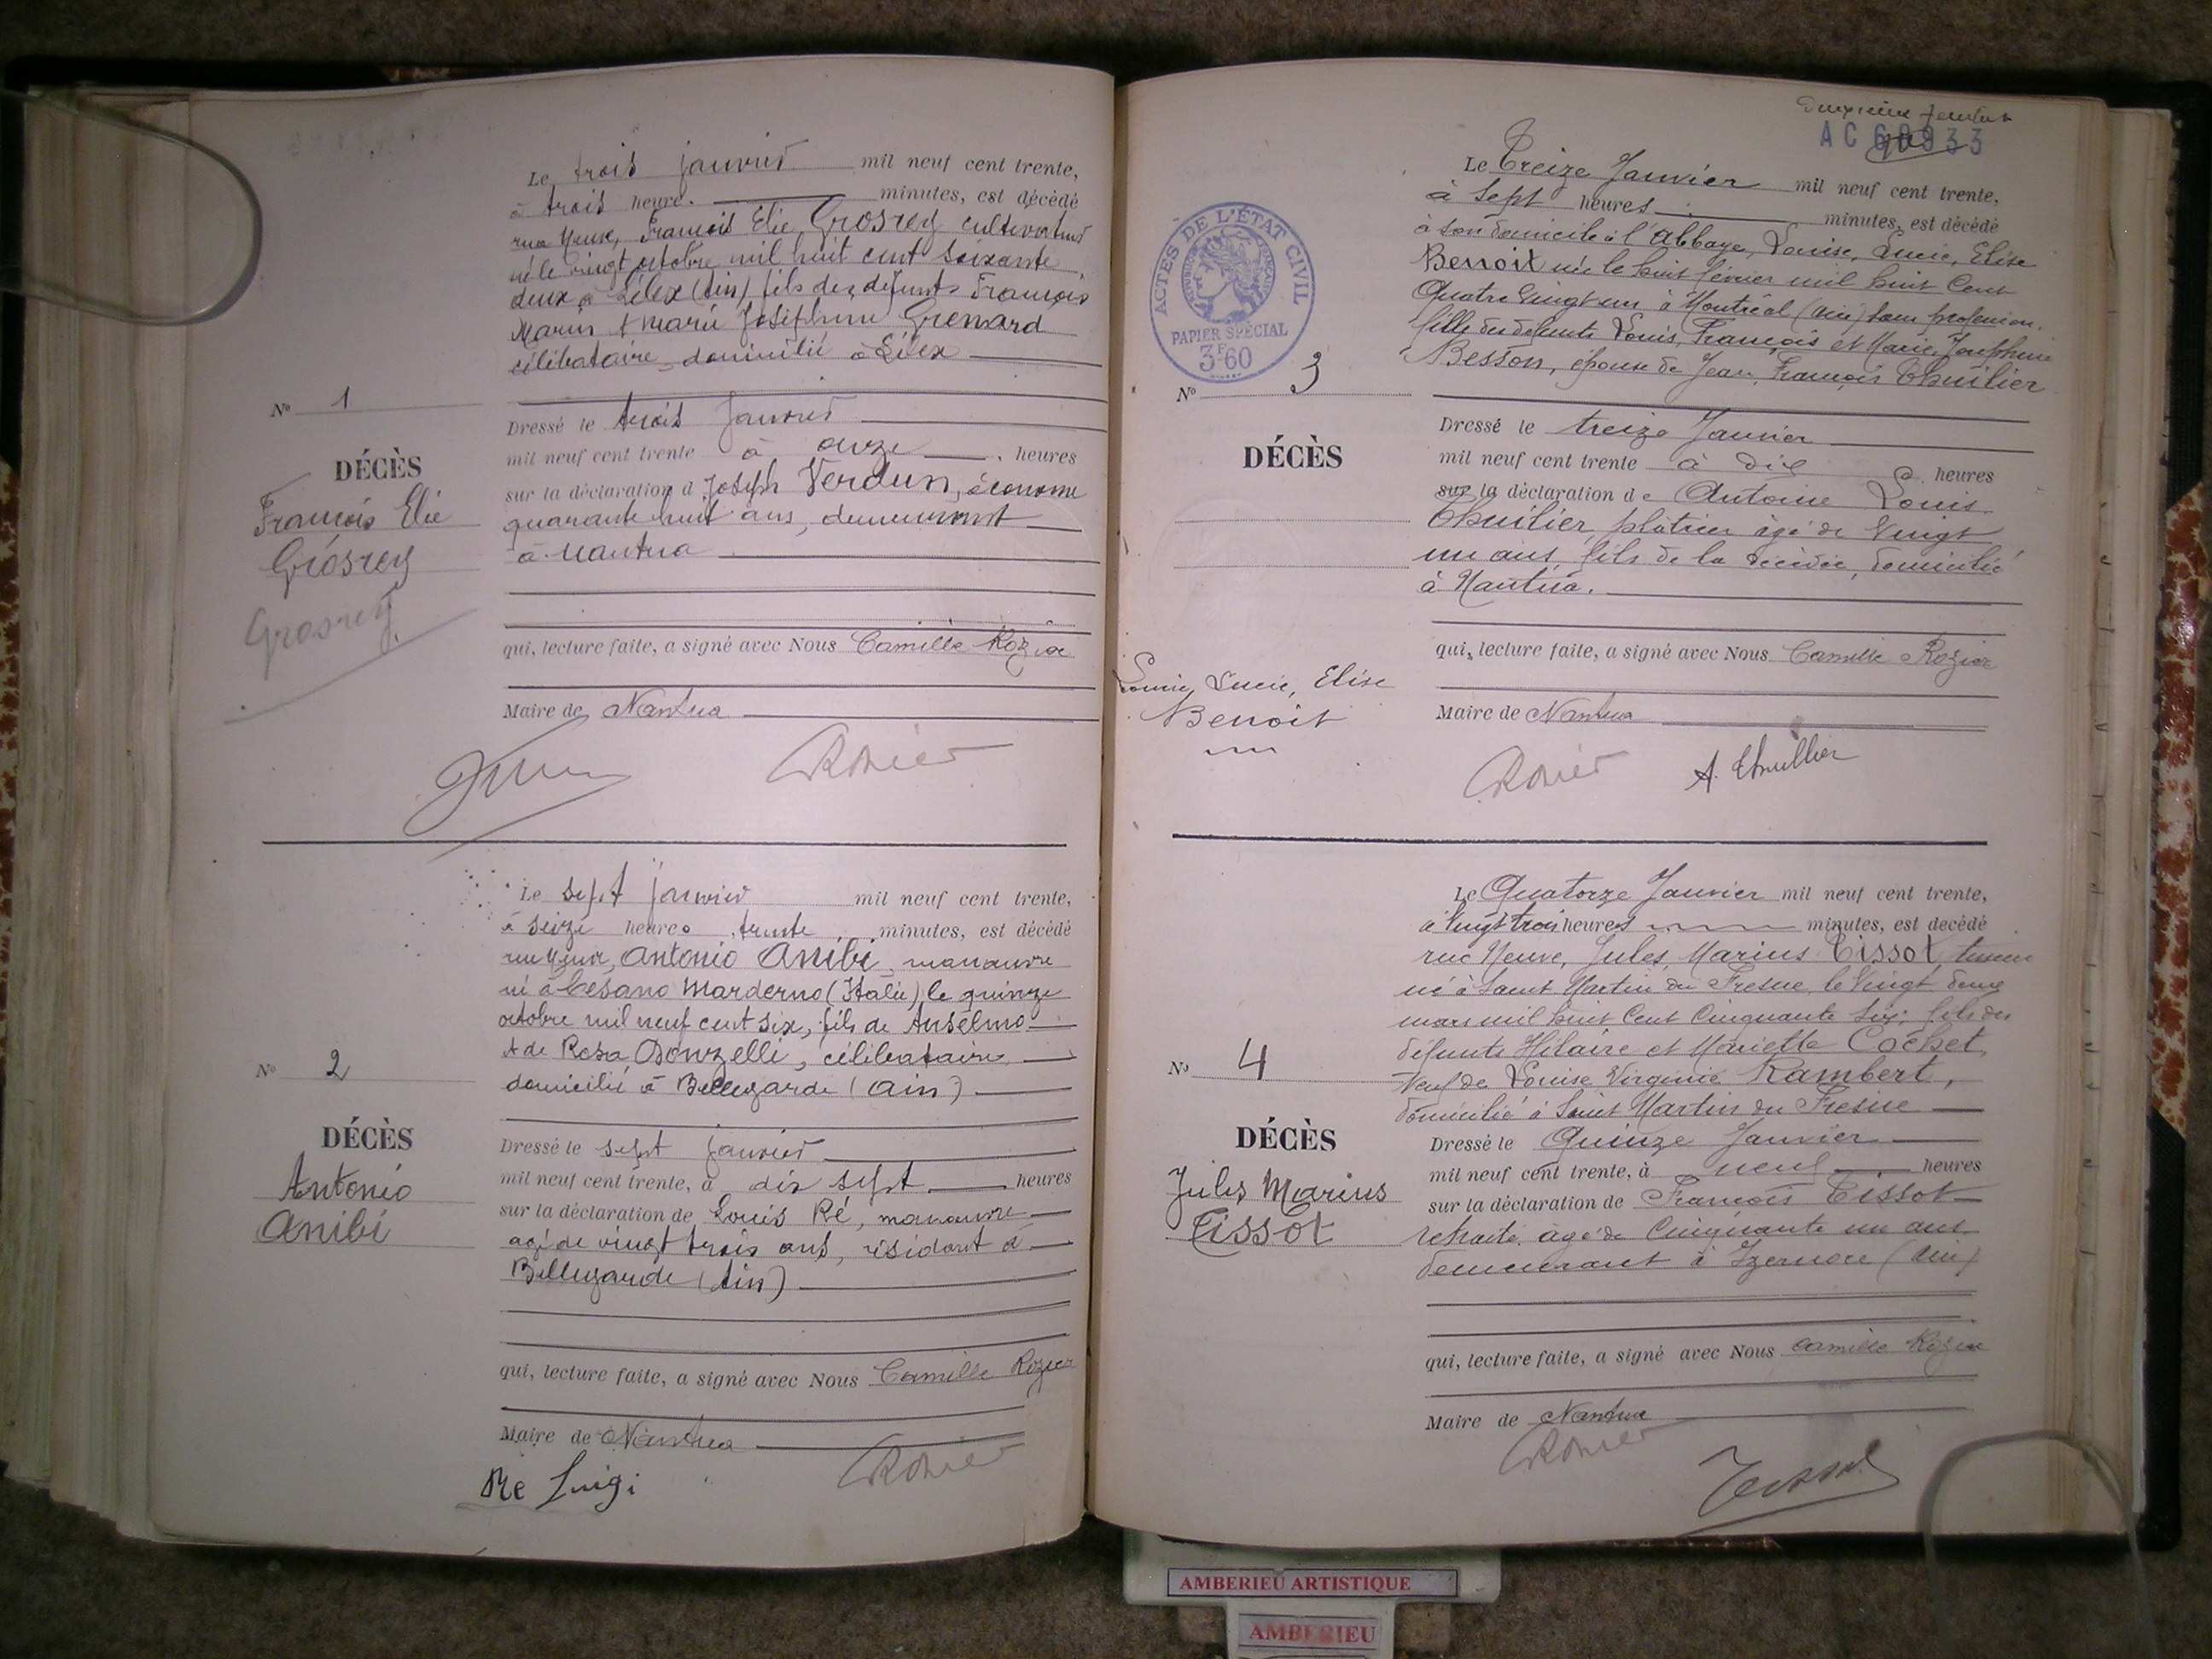 Le trois janvier mil neuf cent trente,
à trois heure. minutes, est décédé
rue Neuve, François Elie Grosrey cultivateur
né le vingt octobre mil huit cent soixante
deux à Lélex (Ain) fils des défunts François
Marin et Marie Joséphine Grenard
célibataire, domicilié à Lélex
No 1
Dressé le trois janvier
mil neuf cent trente à onze heures
DÉCÈS
François Elie
Grosrey
Grosrey
sur la déclaration d Joseph Verdun, économe
quarante huit ans, demeurant
à Nantua
qui, lecture faite, a signé avec Nous Camille Rozier
Maire de Nantua
Rozier
Le sept janvier mil neuf cent trente,
à seize heures trente minutes, est décédé
rue Neuve, Antonio Anibi, manœuvre
né à Cesano Marderno (Italie), le quinze
octobre mil neuf cent six, fils de Anselmo
et de Rosa Donzelli, célibataire,
domicilié à Bellegarde (Ain)
No 2
DÉCÈS
Antonio
Anibi
Dressé le sept janvier
mil neuf cent trente, à dix sept heures
sur la déclaration de Louis Ré, manœuvre
agé de vingt trois ans, résidant à
Bellegarde (Ain)
qui, lecture faite, a signé avec Nous Camille Rozier
Maire de Nantua
Re Luigi
Rozier
AC 60933
ACTES DE L'ÉTAT CIVIL
PAPIER SPÉCIAL
3F60
Le Treize Janvier mil neuf cent trente,
à sept heures minutes, est décédé
à son domicile à l'abbaye, Louise, Lucie, Elise
Benoit née le huit février mil huit Cent
Quatre Vingt un à Montréal (Ain) sans profession.
fille des défunts Louis, François et Marie Joséphine
Besson, épouse de Jean, François Thuilier
No 3
DÉCÈS
Louise, Lucie, Elise
Benoit
Dressé le treize Janvier
mil neuf cent trente à dix heures
sur la déclaration de Antoine Louis
Thuilier, plâtrier âgé de Vingt
un ans, fils de la décédée, domicilié
à Nantua.
qui, lecture faite, a signé avec Nous Camille Rozier
Maire de Nantua
Rozier A. Thuillier
Le Quatorze Janvier mil neuf cent trente,
à Vingt trois heures minutes, est décédé
rue Neuve, Jules, Marius Tissot
né à Saint Martin du Fresne, le Vingt deux
mars mil huit Cent Cinquante Six, fils des
défunts Hilaire et Mariette Cochet,
Veuf de Louise Virginie Rambert,
domicilié à Saint Martin du Fresne
No 4
DÉCÈS
Jules Marius
Tissot
Dressé le Quinze Janvier
mil neuf cent trente, à neuf heures
sur la déclaration de François Tissot
retraité, âgé de Cinquante un ans
demeurant à Izernore (Ain)
qui, lecture faite, a signé avec Nous Camille Rozier
Maire de Nantua
Rozier
Tissot
AMBERIEU ARTISTIQUE
AMBERIEU